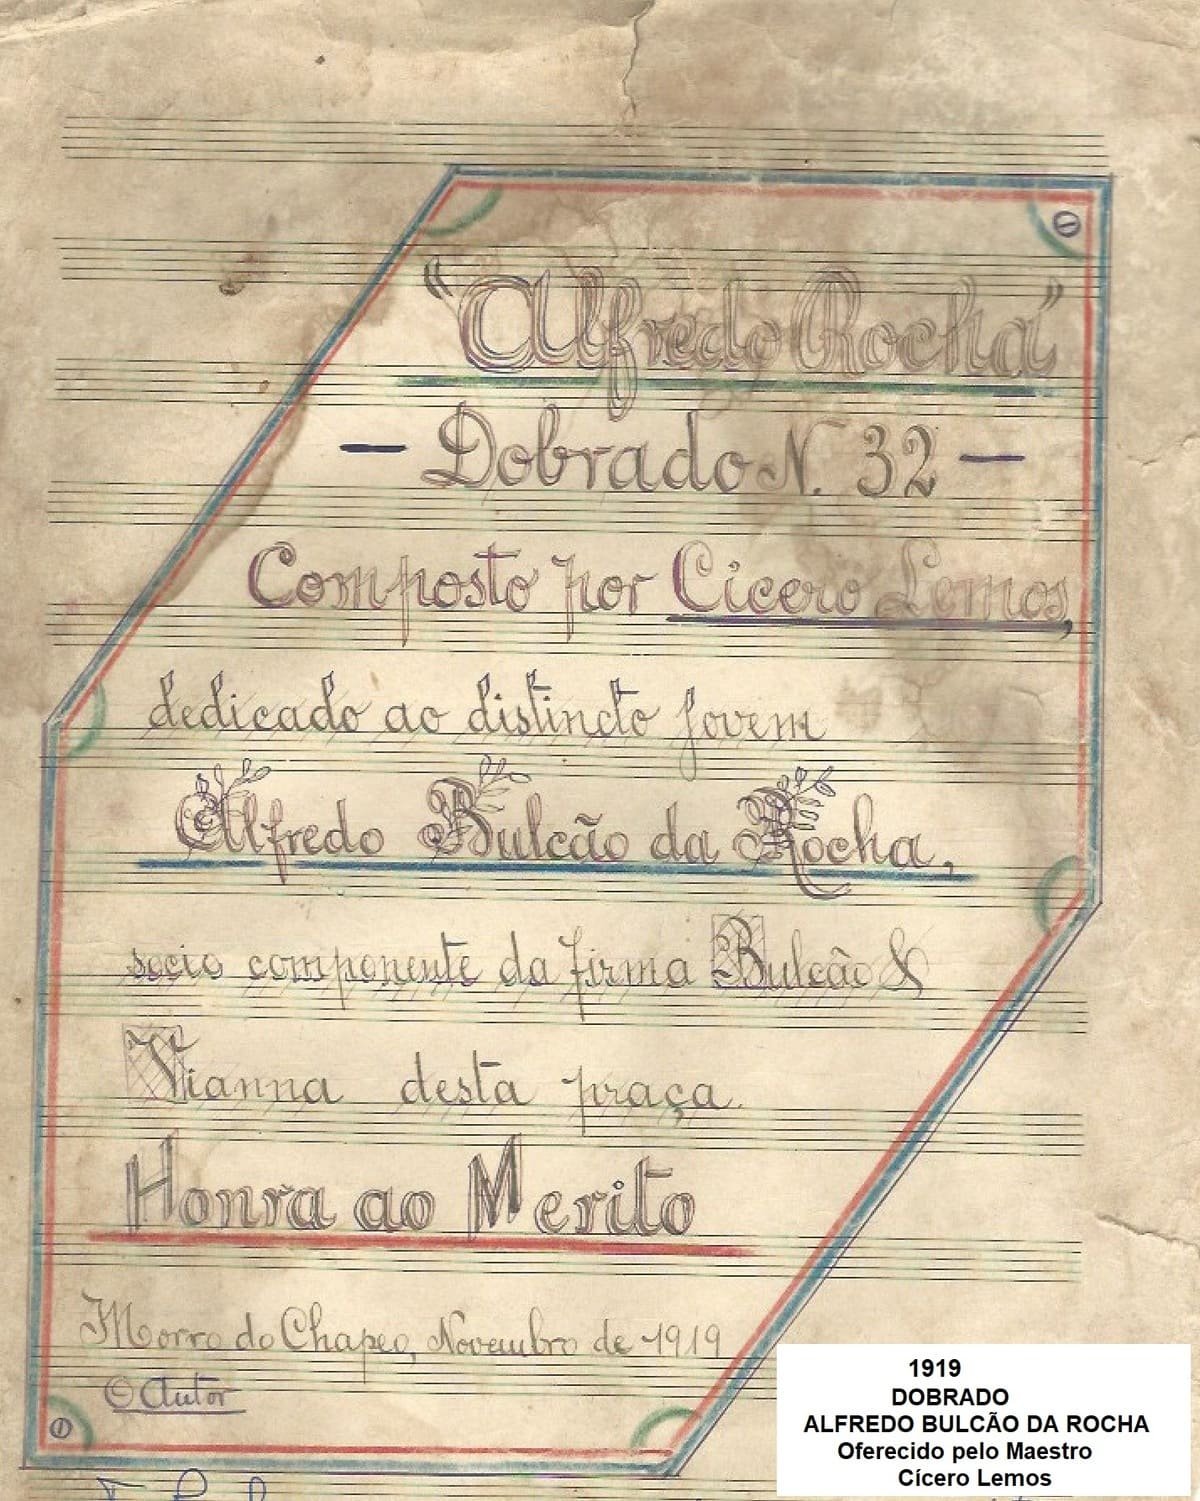 "Alfredo Rocha"
— Dobrado N. 32 —
Composto por Cicero Lemos,
dedicado ao distincto jovem
Alfredo Bulcão da Rocha,
socio componente da firma Bulcão &
Vianna desta praça.
Honra ao Merito
Morro do Chapeo, Novembro de 1919
O Autor
1919
DOBRADO
ALFREDO BULCÃO DA ROCHA
Oferecido pelo Maestro
Cícero Lemos